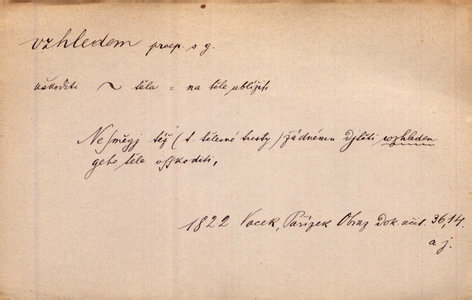 vzhledem praep. s g.
uškoditi ~ těla = na těle ublížiti
Nesmějí též (t. tělesné tresty) žádnému djtěti wzhledem
geho těla usskoditi,
1822 Vacek, Pařízek Obraz Dok. učit. 36, 14.
a j.